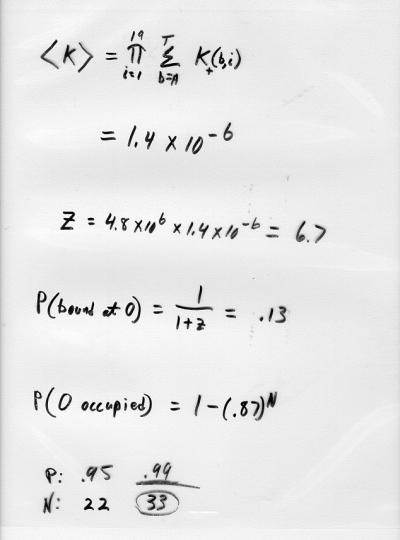 ⟨K⟩ = ∏_{i=1}^{19} ∑_{b=A}^{T} K_+(b,i)
= 1.4 x 10^{-6}
Z = 4.8x10^6 x 1.4 x 10^{-6} = 6.7
P(bound at 0) = 1/(1+z) = .13
P(0 occupied) = 1-(.87)^N
P: .95 .99
N: 22 33